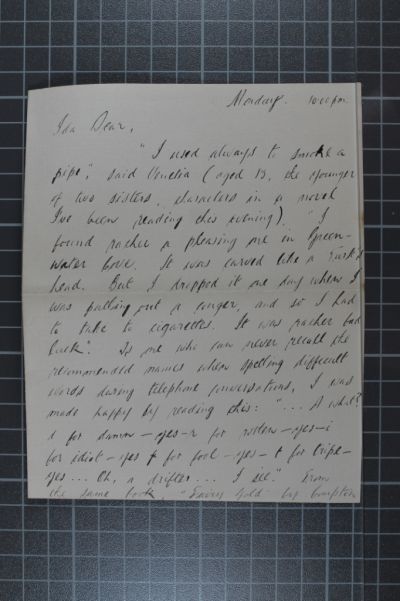 Monday. 10.00 pm
Ida Dear,
"I used always to smoke a
pipe", said Venetia (aged 13, the younger
of two sisters, characters in a novel
I've been reading this evening). "I
found rather a pleasing one in Green-
water Cove. It was carved like a Turk's
head. But I dropped it one day when I
was pulling out a conger, and so I had
to take to cigarettes. It was rather bad
luck". As one who can never recall the
recommended names when spelling difficult
words during telephone conversations, I was
made happy by reading this: "... A what?
d for damn - yes - r for rotten - yes - i
for idiot - yes f for fool - yes - t for tripe -
yes ... Oh, a drifter ... I see." From
the same book, "Fairy Gold" by Compton